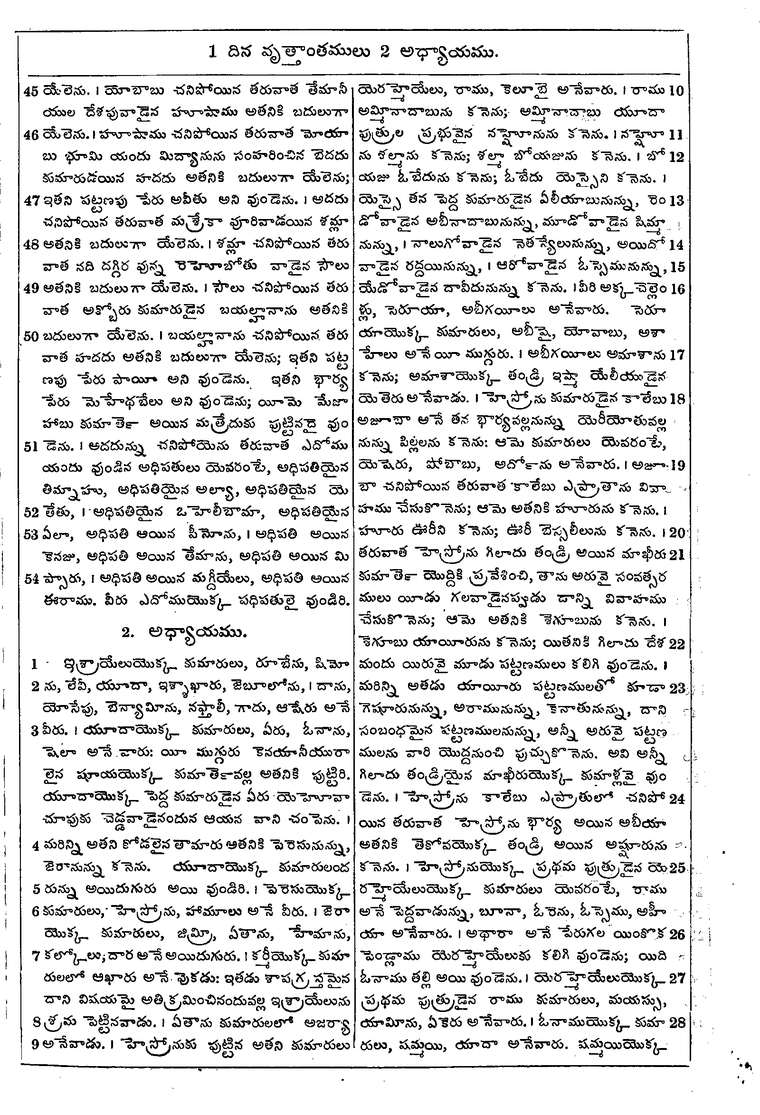 1 దిన వృత్తాంతములు 2 అధ్యాయము.
45 యేలెను. । యోబాబు చనిపోయిన తరువాత తేమానీ
యుల దేశపువాడైన హూషాము అతనికి బదులుగా
46 యేలెను. । హూషాము చనిపోయిన తరువాత మోయా
బు భూమి యందు మిద్యానును సంహరించిన బెదదు
కుమారుడయిన హదదు అతనికి బదులుగా యేలెను;
47 ఇతని పట్టణపు పేరు అవీతు అని వుండెను. । అదదు
చనిపోయిన తరువాత మశ్రేకా వూరివాడయిన శమ్లా
48 అతనికి బదులుగా యేలెను. । శమ్లా చనిపోయిన తరు
వాత నది దగ్గిర వున్న రెహూబోతు వాడైన సౌలు
49 అతనికి బదులుగా యేలెను. । సౌలు చనిపోయిన తరు
వాత అక్బోరు కుమారుడైన బయల్హానాను అతనికి
50 బదులుగా యేలెను. । బయల్హానాను చనిపోయిన తరు
వాత హదదు అతనికి బదులుగా యేలెను; ఇతని పట్ట
ణపు పేరు పాయీ అని వుండెను. ఇతని భార్య
పేరు మెహేథబేలు అని వుండెను; యీమె మేజా
హాబు కుమార్తె అయిన మత్రేదుకు పుట్టినదై వుం
51 డెను. । అదదున్ను చనిపోయెను తరువాత ఎదోము
యందు వుండిన అధిపతులు యెవరంటే, అధిపతియైన
తిమ్నాహు, అధిపతియైన అల్యా, అధిపతియైన యె
52 తేతు, । అధిపతియైన ఒహెలీబామా, అధిపతియైన
53 ఏలా, అధిపతి అయిన పీనోను, । అధిపతి అయిన
కెనజు, అధిపతి అయిన తేమాను, అధిపతి అయిన మి
54 ప్సారు, । అధిపతి అయిన మగ్దీయేలు, అధిపతి అయిన
ఈరాము. వీరు ఎదోముయొక్క పధిపతులై వుండిరి.
2. అధ్యాయము.
1 ఇశ్రాయేలుయొక్క కుమారులు, రూబేను, షిమో
2 ను, లేవీ, యూదా, ఇశ్శాఖారు, జెబూలోను, । దాను,
యోసేఫు, బెన్యామీను, నఫ్తాలీ, గాదు, ఆషేరు అనే
3 వీరు. । యూదాయొక్క కుమారులు, ఏరు, ఓనాను,
షెలా అనే వారు: యీ ముగ్గురు కెనయానీయురా
లైన షూయయొక్క కుమార్తెవల్ల అతనికి పుట్టిరి.
యూదాయొక్క పెద్ద కుమారుడైన ఏరు యెహోవా
చూపుకు చెడ్డవాడైనందున ఆయన వాని చంపెను. ।
4 మరిన్ని అతని కోడలైన తామారు ఆతనికి పెరెసునున్ను,
జెరానున్ను కనెను. యూదాయొక్క కుమారులంద
5 రున్ను అయిదుగురు అయి వుండిరి. । పెరెసుయొక్క
6 కుమారులు, హెస్రోను, హామూలు అనే వీరు. । జెరా
యొక్క కుమారులు, జిమ్రీ, ఏతాను, హేమాను,
7 కల్కోలు; దార అనే అయిదుగురు. । కర్మీయొక్క కుమా
రులలో ఆఖారు అనే వొకడు: ఇతడు శాపగ్రస్తమైన
దాని విషయమై అతిక్రమించినందువల్ల ఇశ్రాయేలును
8 శ్రమ పెట్టినవాడు. । ఏతాను కుమారులలో అజర్యా
9 అనేవాడు. । హెస్రోనుకు పుట్టిన అతని కుమారులు
యెరహ్మెయేలు, రాము, కెలూబై అనేవారు. । రాము 10
అమ్మినాదాబును కనెను; అమ్మినాదాబు యూదా
పుత్రుల ప్రభువైన నహ్షోనును కనెను. । నహ్షో 11
ను శల్మాను కనెను; శల్మా బోయజును కనెను. । బో 12
యజు ఓబేదును కనెను; ఓబేదు యెస్సైని కనెను. ।
యెస్సై తన పెద్ద కుమారుడైన ఏలీయాబునున్ను, రెం 13
డోవాడైన అబీనాదాబునున్ను, మూడోవాడైన షిమ్మా
నున్ను, । నాలుగోవాడైన నెతన్యేలునున్ను, అయిదో 14
వాడైన రద్దయినున్ను, । ఆరోవాడైన ఓస్సెమునున్ను, 15
యేడోవాడైన దావీదునున్ను కనెను. । వీరి అక్క చెల్లెం 16
ళ్లు, సెరూయా, అబీగయీలు అనేవారు. సెరూ
యాయొక్క కుమారులు, అబీషై, యోవాబు, అశా
హేలు అనే యీ ముగ్గురు. । అబీగయీలు అమాశాను 17
కనెను; అమాశాయొక్క తండ్రి ఇష్మా యేలీయుడైన
యెతెరు అనేవాడు. । హెస్రోను కుమారుడైన కాలేబు 18
అజూబా అనే తన భార్యవల్లనున్ను యెరీయోతువల్ల
నున్ను పిల్లలను కనెను: ఆమె కుమారులు యెవరంటే,
యెషెరు, షోబాబు, అర్దోను అనేవారు. । అజూ 19
బా చనిపోయిన తరువాత కాలేబు ఎఫ్రాతాను వివా
హము చేసుకొనెను; ఆమె అతనికి హూరును కనెను. ।
హూరు ఊరీని కనెను; ఊరీ బెస్సలీలును కనెను. । 20
తరువాత హెస్రోను గిలాదు తండ్రి అయిన మాఖీరు 21
కుమార్తె యొద్దికి ప్రవేశించి, తాను అరువై సంవత్సర
ములు యీడు గలవాడైనప్పుడు దాన్ని వివాహము
చేసుకొనెను; ఆమె అతనికి శెగూబును కనెను. ।
శెగూబు యాయీరును కనెను; యితనికి గిలాదు దేశ 22
మందు యిరువై మూడు పట్టణములు కలిగి వుండెను. ।
మరిన్ని అతడు యాయీరు పట్టణములతో కూడా 23
గెషూరునున్ను, అరామునున్ను, కెనాతునున్ను, దాని
సంబంధమైన పట్టణములనున్ను, అన్నీ అరువై పట్టణ
ములను వారి యొద్దనుంచి పుచ్చుకొనెను. అవి అన్నీ
గిలాదు తండ్రియైన మాఖీరుయొక్క కుమాళ్లవై వుం
డెను. । హెస్రోను కాలేబు ఎఫ్రాతులో చనిపో 24
యిన తరువాత హెస్రోను భార్య అయిన అబీయా
అతనికి తెకోవయొక్క తండ్రి అయిన అష్షూరును
కనెను. । హెస్రోనుయొక్క ప్రథమ పుత్రుడైన యె 25
రహ్మెయేలుయొక్క కుమారులు యెవరంటే, రాము
అనే పెద్దవాడున్ను, బూనా, ఓరెను, ఓస్సెము, అహీ
యా అనేవారు. । అథారా అనే పేరుగల యింకొక 26
పెండ్లాము యెరహ్మెయేలుకు కలిగి వుండెను; యిది
ఓనాము తల్లి అయి వుండెను. । యెరహ్మెయేలుయొక్క 27
ప్రథమ పుత్రుడైన రాము కుమారులు, మయస్సు,
యామీను, ఏకెరు అనేవారు. । ఓనాముయొక్క కుమా 28
రులు, షమ్మయి, యాదా అనేవారు. షమ్మయియొక్క